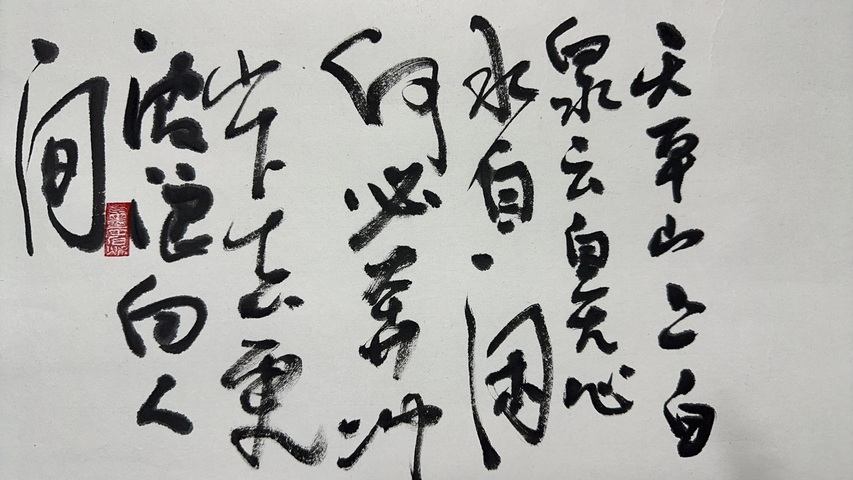 天平山上白
泉云自无心
水自闲
何必奔冲
山下去更
浪向人
间